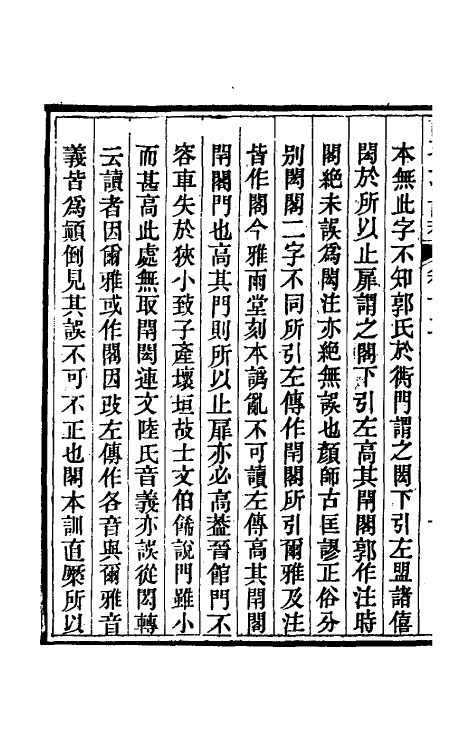 本無此字不知郭氏於衖門謂之閎下引左盟諸僖
閎於所以止扉謂之閣下引左高其閈閣郭作注時
閣絶未誤爲閎注亦絶無誤也顏師古匡謬正俗分
別閎閣二字不同所引左傳作閈閣所引爾雅及注
皆作閣今雅雨堂刻本譌亂不可讀左傳高其閈閣
閈閣門也高其門則所以止扉亦必高葢晉館門不
容車失於狹小致子產壞垣故士文伯偁說門雖小
而甚高此處無取閈閎連文陸氏音義亦誤從閎轉
云讀者因爾雅或作閣因改左傳作各音與爾雅音
義皆爲顚倒見其誤不可不正也閣本訓直橜所以